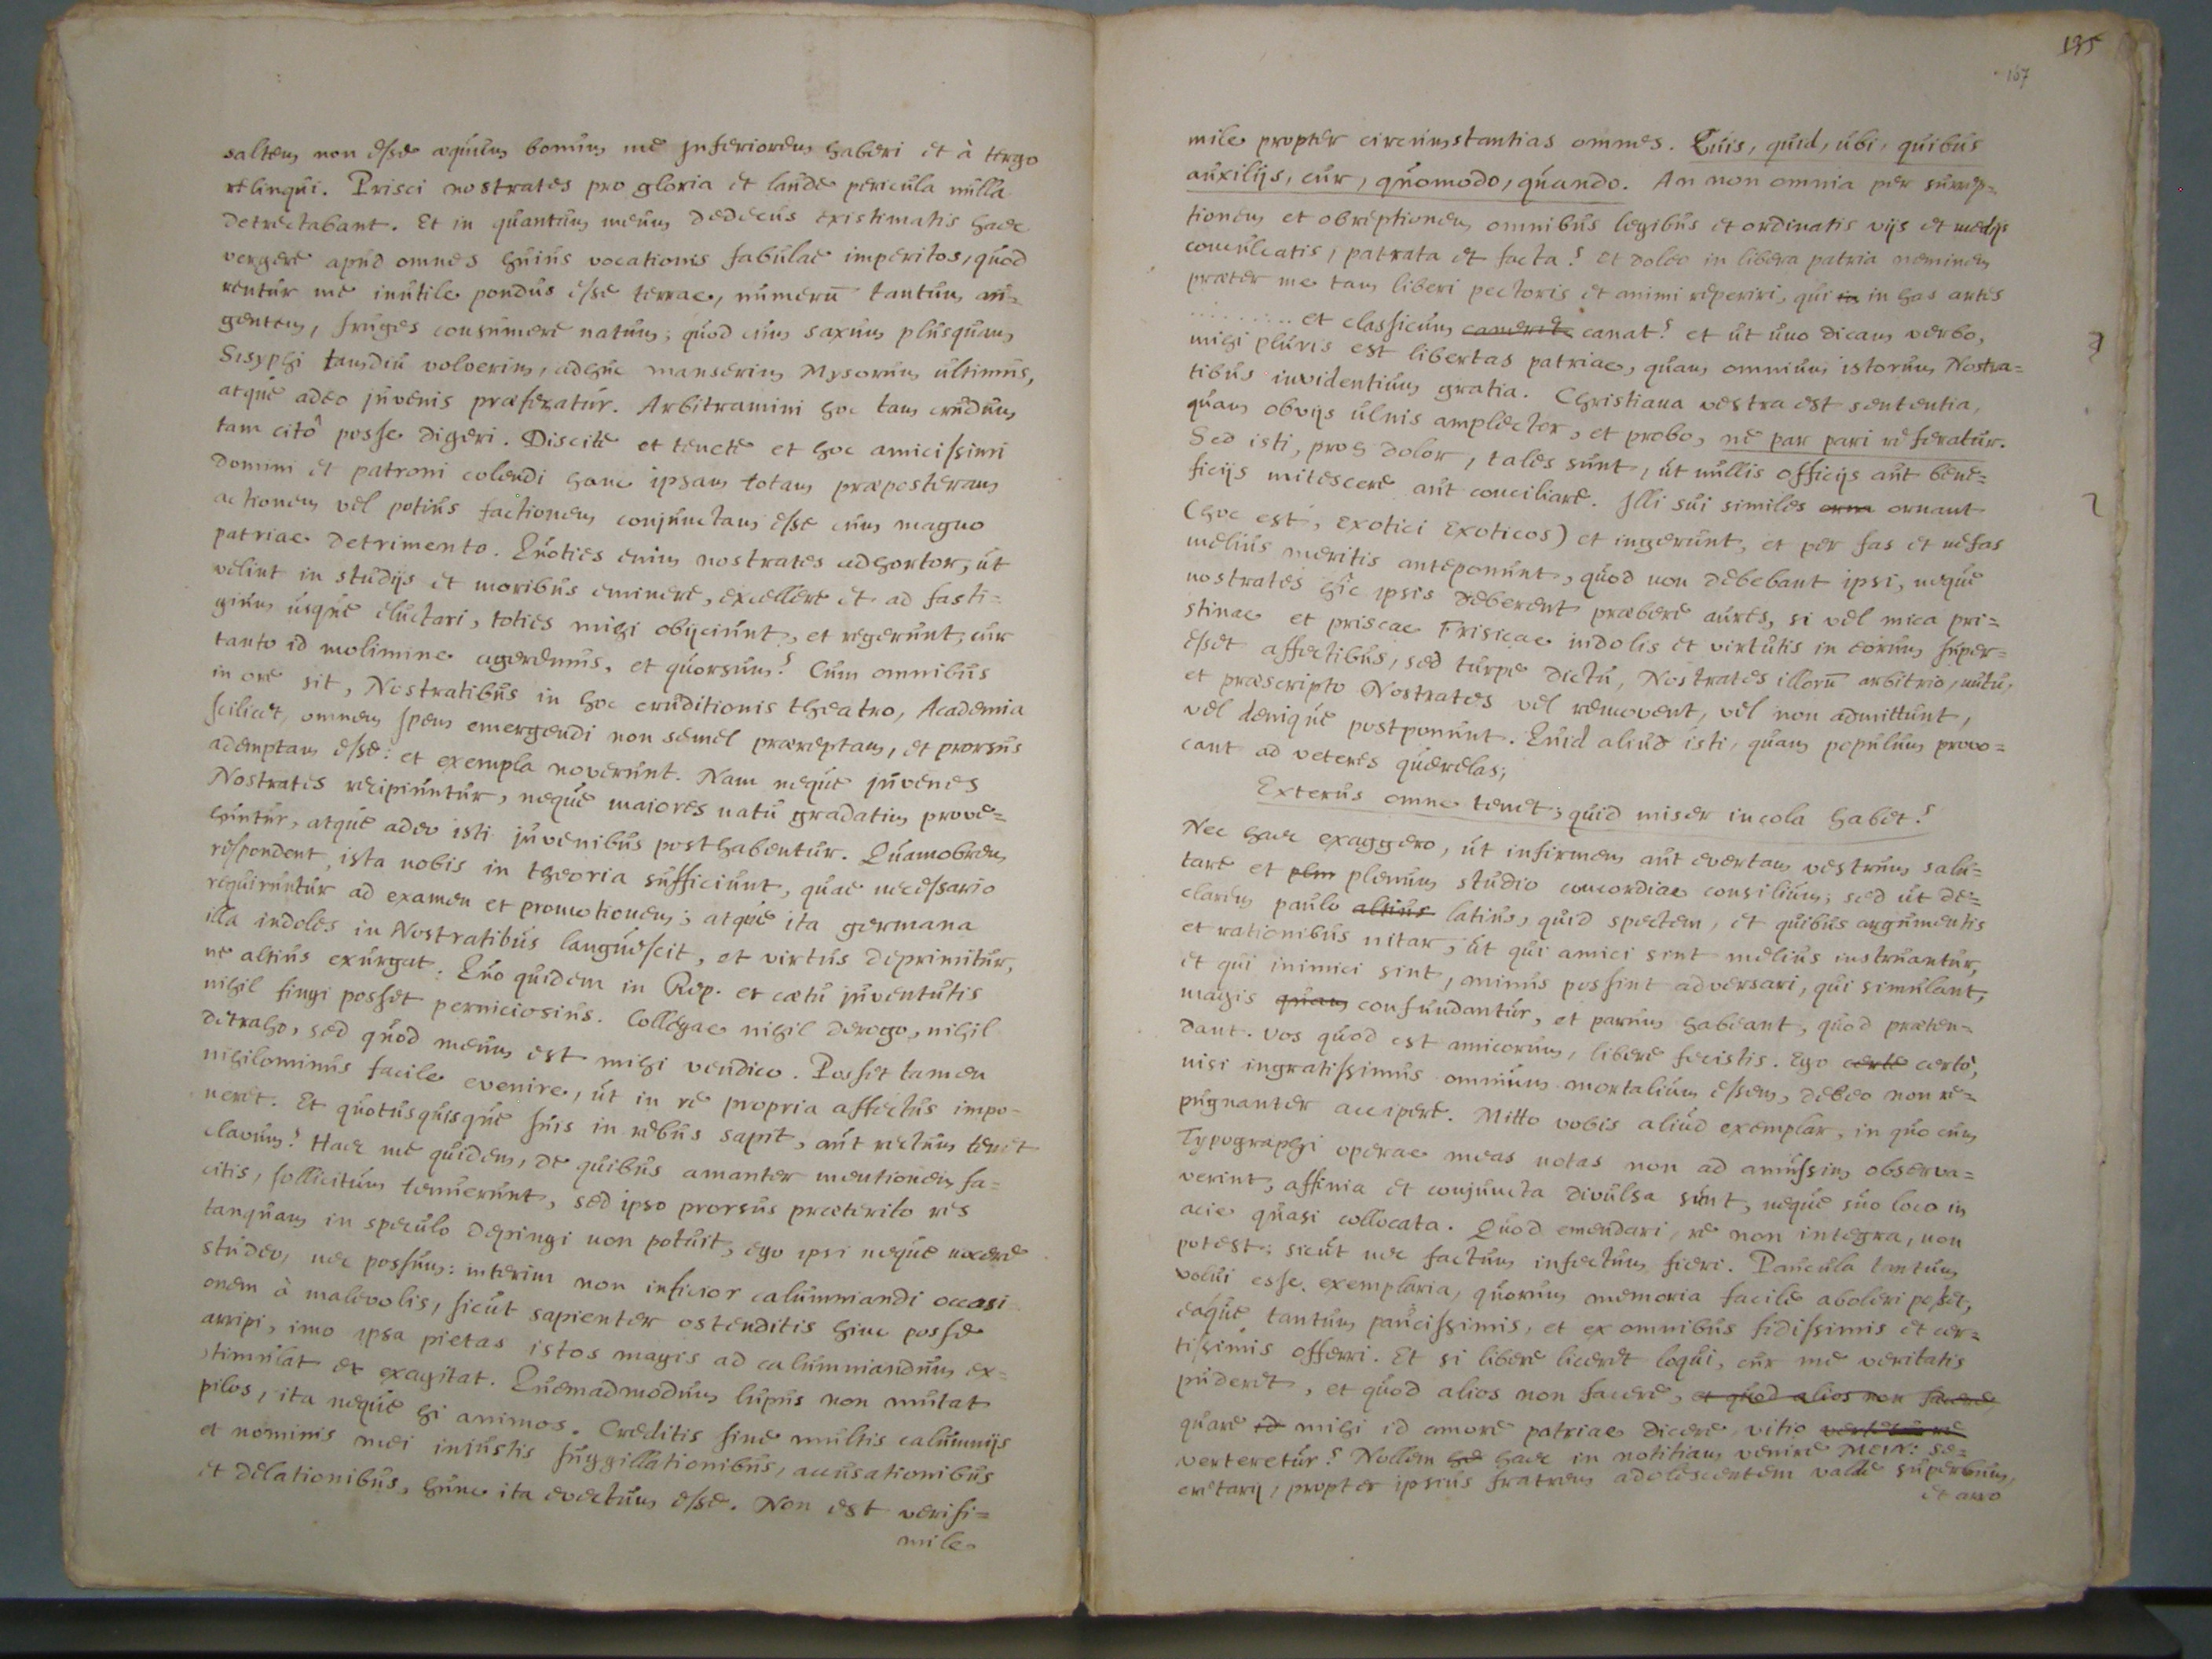 saltem non esse æquum bonum me inferiorem haberi et à tergo
relinqui. Prisci nostrates pro gloria et laude pericula nulla
detrectabant. Et in quantum meum dedecus existimatis haec
vergere apud omnes huius vocationis fabulae imperitos, quod
rentur me inutile pondus esse terrae, numerū tantum au=
gentem, fruges consumere natum; quod cum saxum plusquam
Sisyphi tamdiu volverim, adhuc manserim Mysorum ultimus,
atque adeo juvenis præferatur. Arbitramini hoc tam crudum
tam citô posse digeri. Discite et tenete et hoc amicissimi
domini et patroni colendi hanc ipsam totam præposteram
actionem vel potius factionem conjunctam esse cum magno
patriae detrimento. Quoties enim nostrates adhortor, ut
velint in studijs et moribus eminere, excellere et ad fasti=
gium usque eluctari, toties mihi obijciunt, et regerunt, cur
tanto id molimine ageremus, et quorsum? Cum omnibus
in ore sit, Nostratibus in hoc eruditionis theatro, Academia
scilicet, omnem spem emergendi non semel præreptam, et prorsus
ademptam esse: et exempla noverunt. Nam neque juvenes
Nostrates recipiuntur, neque maiores natu gradatim prove=
huntur, atque adeo isti juvenibus posthabentur. Quamobrem
respondent, ista nobis in theoria sufficiunt, quae necessario
requiruntur ad examen et promotionem; atque ita germana
illa indoles in Nostratibus languescit, et virtus deprimitur,
ne altius exurgat. Quo quidem in Rep. et cœtu juventutis
nihil fingi posset perniciosius. Collegae nihil derogo, nihil
detraho, sed quod meum est mihi vendico. Posset tamen
nihilominus facile evenire, ut in re propria affectus impo=
neret. Et quotusquisque suis in rebus sapit, aut rectum tenet
clavum? Haec me quidem, de quibus amanter mentionem fa=
citis, sollicitum tenuerunt, sed ipso prorsus præterito res
tanquam in speculo depingi non potuit, ego ipsi neque nocere
studeo, nec possum: interim non inficior calumniandi occasi
onem à malevolis, sicut sapienter ostenditis hinc posse
arripi, imo ipsa pietas istos magis ad calumniandum ex=
stimulat et exagitat. Quemadmodum lupus non mutat
pilos, ita neque hi animos. Creditis sine multis calumnijs
et nominis mei injustis suggillationibus, accusationibus
et delationibus, hunc ita evectum esse. Non est verisi=
mile
135
167
mile propter circumstantias omnes. Quis, quid, ubi, quibus
auxilijs, cur, quomodo, quando. An non omnia per surrep=
tionem et obreptionem omnibus legibus et ordinatis vijs et medijs
conculcatis, patrata et facta? et doleo in libera patria neminem
præter me tam liberi pectoris et animi reperiri, qui in in has artes
.......... et classicum canerete canat? et ut uno dicam verbo,
mihi pluris est libertas patriae, quam omnium istorum Nostra=
tibus invidentium gratia. Christiana vestra est sententia,
quam obvijs ulnis amplector, et probo, ne par pari referatur.
Sed isti, proh dolor, tales sunt, ut nullis officijs aut bene=
ficijs mitescere aut conciliare. Illi sui similes orna ornant
(hoc est, exotici exoticos) et ingerunt, et per fas et nefas
melius meritis anteponunt, quod non debebant ipsi, neque
nostrates hîc ipsis deberent præbere aures, si vel mica pri=
stinae et priscae Frisicae indolis et virtutis in eorum super=
esset affectibus, sed turpe dictu, Nostrates illorū arbitrio, nutu,
et præscripto Nostrates vel removent, vel non admittunt,
vel denique postponunt. Quid aliud isti, quam populum provo=
cant ad veteres querelas;
Exterus omne tenet; quid miser incola habet?
Nec haec exaggero, ut infirmem aut evertam vestrum salu=
tare et plm plenum studio concordiae consilium; sed ut de=
clarem paulo altius latius, quid spectem, et quibus argumentis
et rationibus nitar, ut qui amici sint melius instruantur,
et qui inimici sint, minus possint adversari, qui simulant,
magis quam confundantur, et parum habeant, quod præten=
dant. Vos quod est amicorum, libere fecistis. Ego certe certo,
nisi ingratissimus omnium mortalium essem, debeo non re=
pugnanter accipere. Mitto vobis aliud exemplar, in quo cum
Typographi operae meas notas non ad amussim observa=
verint, affinia et conjuncta divulsa sunt, neque suo loco in
acie quasi collocata. Quod emendari, re non integra, non
potest; sicut nec factum infectum fieri. Paucula tantum
volui esse exemplaria, quorum memoria facile aboleri posset,
eaque tantum paucissimis, et ex omnibus fidissimis et cer=
tissimis offerri. Et si libere liceret loqui, cur me veritatis
puderet, et quod alios non facere, et quod alios non facere
quare id mihi id amore patriae dicere vitio
verteretur? Nollem hæ haec in notitiam venire Mein: Se=
cretarij, propter ipsius fratrem adolescentem valde superbum,
et arro